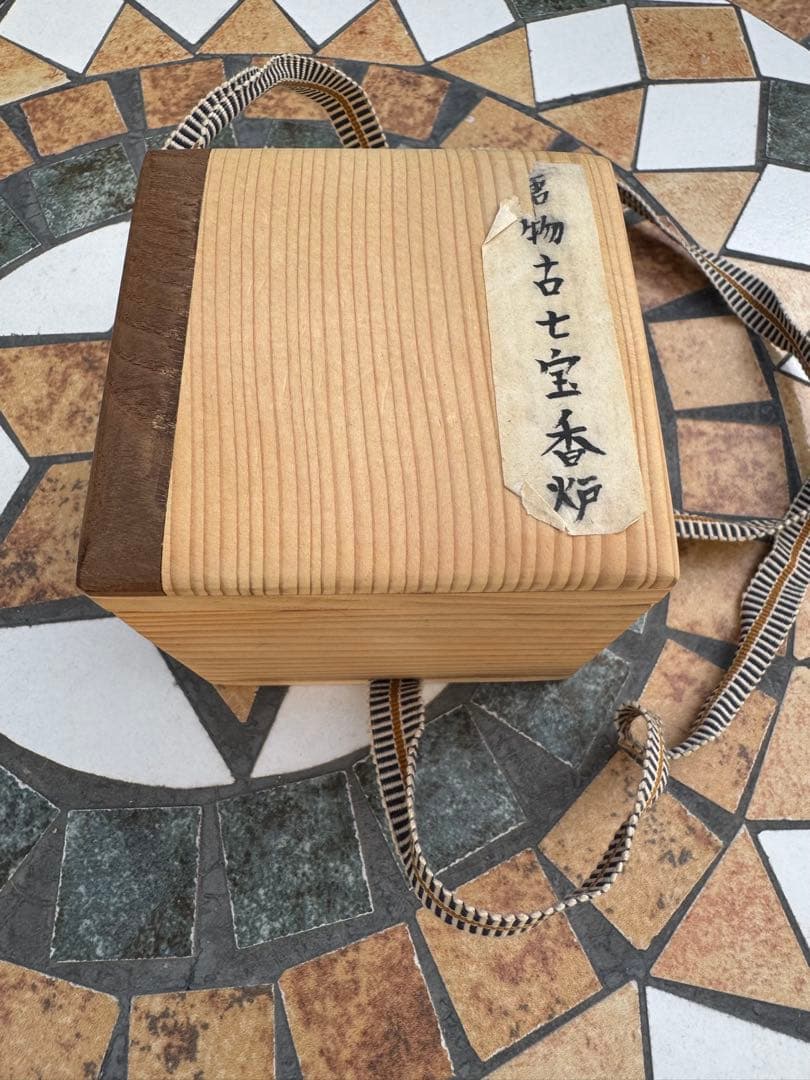 唐物古七宝香炉